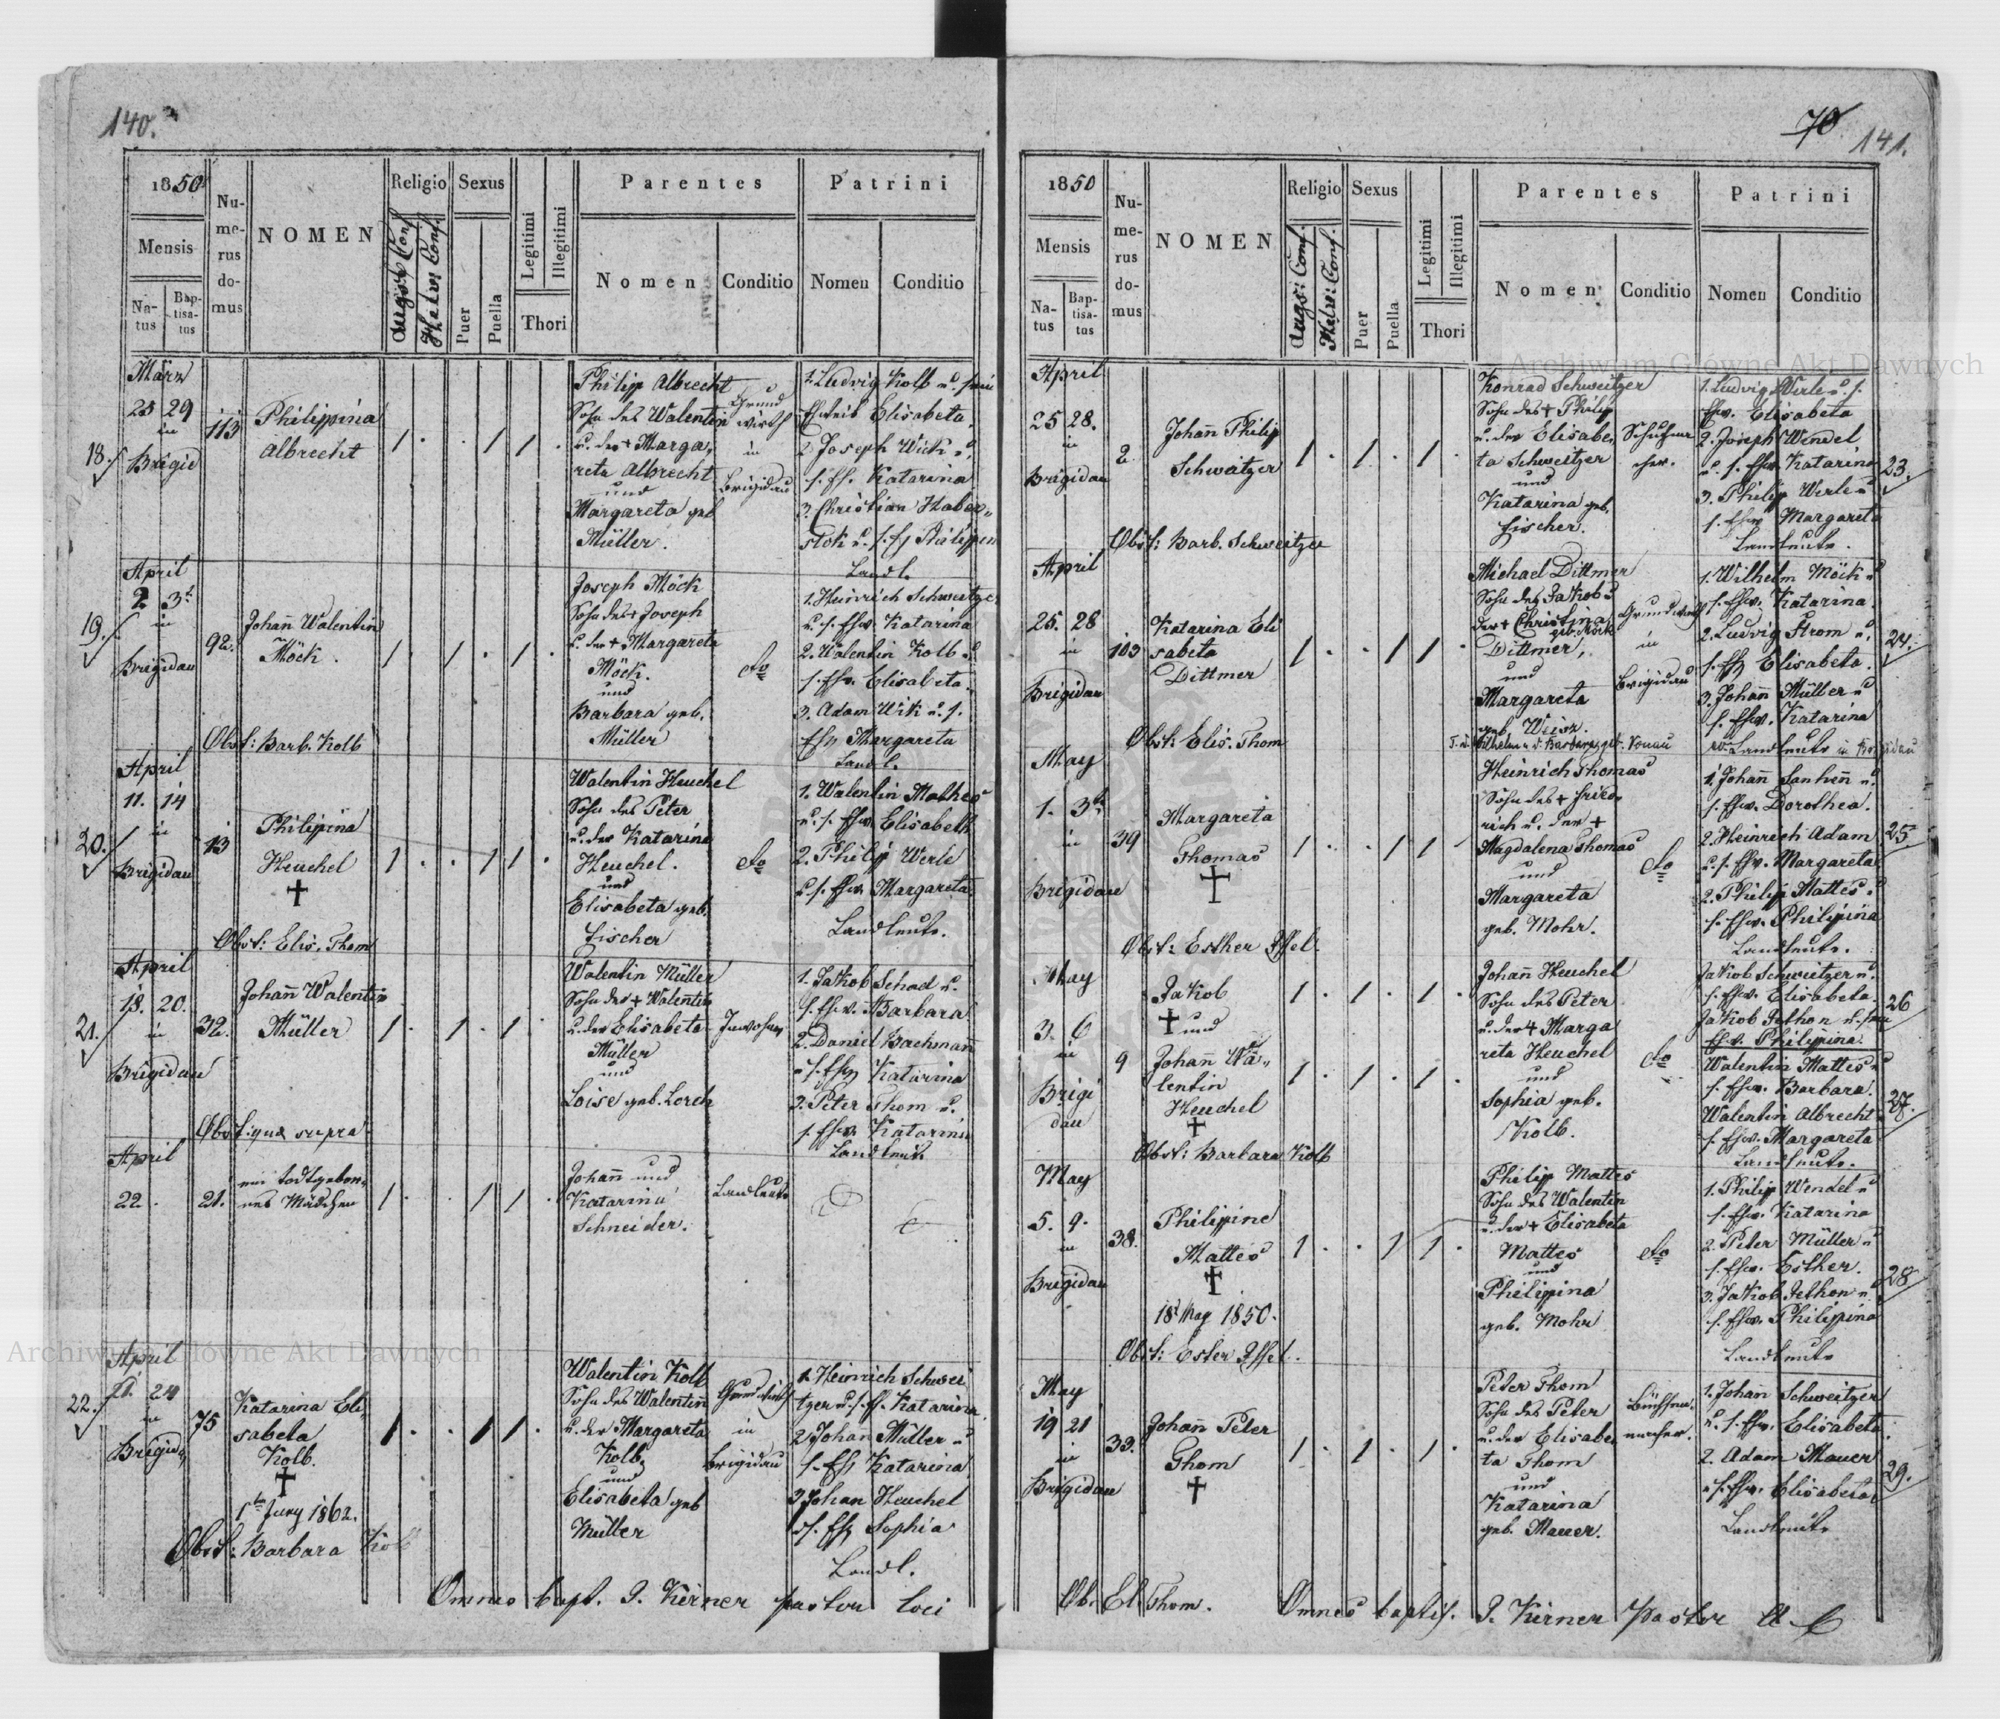 140.
1850
Mensis
Na-
tus
Bap-
tisa-
tus
Nu-
me-
rus
do-
mus
NOMEN
Religio
Augs: Conf.
Helv: Conf.
Sexus
Puer
Puella
Legitimi
Illegitimi
Thori
Parentes
Nomen
Conditio
Patrini
Nomen
Conditio
18.
März
25 29
in
Brigid
113
Philippina
Albrecht
Philipp Albrecht
Sohn des Walentin
u. der + Marga,
reta Albrecht
und
Margareta geb
Müller.
Grund
wirth
in
Brigidau
1. Ludvig Kolb u
Ehweib Elisabeta
2. Joseph Wick u,
s. Eh. Katarina
3. Christian Haber„
stok u. s. Eh Philippin
Landl.
19.
April
2 3t
in
Brigidau
92.
Johañ Walentin
Möck.
Joseph Möck
Sohn des + Joseph
u. der + Margareta
Möck.
und
Barbara geb.
Müller
do
1. Heinrich Schweitze
u. s. Ehw. Katarina
2. Walentin Kolb u
s. Ehw. Elisabeta.
3. Adam Wik u. s.
Ehw Margareta
Landl.
Obst: Barb. Kolb
20.
April
11. 14
in
Brigidau
13
Philipina
Heuchel
Walentin Heuchel
Sohn des Peter
u. der Katarina
Heuchel.
und
Elisabeta geb.
Fischer
do
1. Walentin Mathes
u. s. Ehw Elisabeth
2. Philip Werle
u. s. Ehw Margareta
Landleute.
Obst: Elis. Thom
21.
April
18. 20.
in
Brigidau
32.
Johañ Walentin
Müller
Walentin Müller
Sohn des + Walentin
u. der Elisabeta
Müller
und
Loise geb. Lorch
Inwohner
1. Jakob Schad u.
s. Ehw. Barbara
2. Daniel Bachmañ
u s. Ehw Katarina
3. Peter Thom u.
s. Ehw. Katarina
Landleute
Obst: qua supra
April
22.
21.
ein todtgebor„
nes Mädchen
Johañ und
Katarina
Schneider.
Landleute
22.
April
21. 24
in
Brigid„
75
Katarina Eli
sabeta
Kolb.
1t Juny 1862.
Walentin Kolb
Sohn des Walentiñ
u. der Margareta
Kolb,
und
Elisabeta geb
Müller
Grundwirth
in
Brigidau
1. Heinrich Schwei
tzer u. s. Eh. Katarina
2. Johan Müller u
s. Eh Katarina
3. Johan Heuchel
u s. Eh Sophia
Landl.
Obst: Barbara Kolb
Omnes bapt. J. Kerner pastor loci
70
141.
1850
Mensis
Na-
tus
Bap-
tisa-
tus
Nu-
me-
rus
do-
mus
NOMEN
Religio
Augs: Conf.
Helv: Conf.
Sexus
Puer
Puella
Legitimi
Illegitimi
Thori
Parentes
Nomen
Conditio
Patrini
Nomen
Conditio
Archiwum Główne Akt Dawnych
April
25 28.
in
Brigidau
2
Johañ Philip
Schweitzer
Konrad Schweitzer
Sohn des + Philip
u. der Elisabe,
ta Schweitzer
und
Katarina geb.
Fischer.
Schuhma
cher.
1. Ludvig Werle u. s.
Ehw. Elisabeta
2. Joseph Wendel
u. s. Ehw. Katarina
3. Philip Werle u
s. Ehw Margareta
Landleute.
23.
Obst: Barb. Schweitzer
April
25. 28
in
Brigidau
103
Katarina Eli
sabeta
Dittmer
Michael Dittmer
Sohn des Jakob u
der + Christina
geb. Möck
Dittmer,
und
Margareta
geb. Weisz.
Grundwirth
in
Brigidau
1. Wilhelm Möck u
s. Ehw. Katarina.
2. Ludvig Strom u,
s. Eh Elisabeta.
3. Johan Müller u
s. Ehw. Katarina
Landleute in Brigidau
24.
Obst: Elis. Thom
May
1. 3t
in
Brigidau
39
Margareta
Thomas
Heinrich Thomas
Sohn des + Fried„
rich u. der +
Magdalena Thomas
und
Margareta
geb. Mohr.
do
1. Johañ Sanheñ u.
s. Ehw. Dorothea.
2. Heinrich Adam
u. s. Ehw. Margareta
2. Philip Mattes u
s. Ehw. Philipina
Landleute.
25.
Obst: Esther
May
3. 6
in
Brigi
dau
9
Jakob
und
Johañ Wa„
lentin
Heuchel
Johañ Heuchel
Sohn des Peter
u. der + Marga
reta Heuchel
und
Sophia geb.
Kolb.
do
Jakob Schweitzer u.
s. Ehw. Elisabeta.
Jakob Jethon u.
Ehw. Philipina
Walentin Mattes u
s. Ehw. Barbara.
Walentin Albrecht u
s. Ehw. Margareta
Landleute.
26
27.
Obst: Barbara Kolb
May
5. 9.
in
Brigidau
38.
Philippine
Mattes
18t May 1850.
Philip Mattes
Sohn des Walentin
u. der + Elisabeta
Mattes
und
Philippina
geb. Mohr
do
1. Philip Wendel u
s. Ehw. Katarina
2. Peter Müller u
s. Ehw. Esther.
3. Jakob Jethon u
s. Ehw. Philipina
Landleute
28
Obst: Ester
May
19 21
in
Brigidau
33.
Johañ Peter
Thom
Peter Thom
Sohn des Peter
u. der Elisabe
ta Thom
und
Katarina
geb. Mauer.
Büchsen„
macher.
1. Johañ Schweitzer
u. s. Ehw. Elisabeta.
2. Adam Mauer
u s. Ehw. Elisabeta
Landleute
29.
Ob. El Thom.
Omnes baptis. J. Kerner Pastor
Archiwum Główne Akt Dawnych